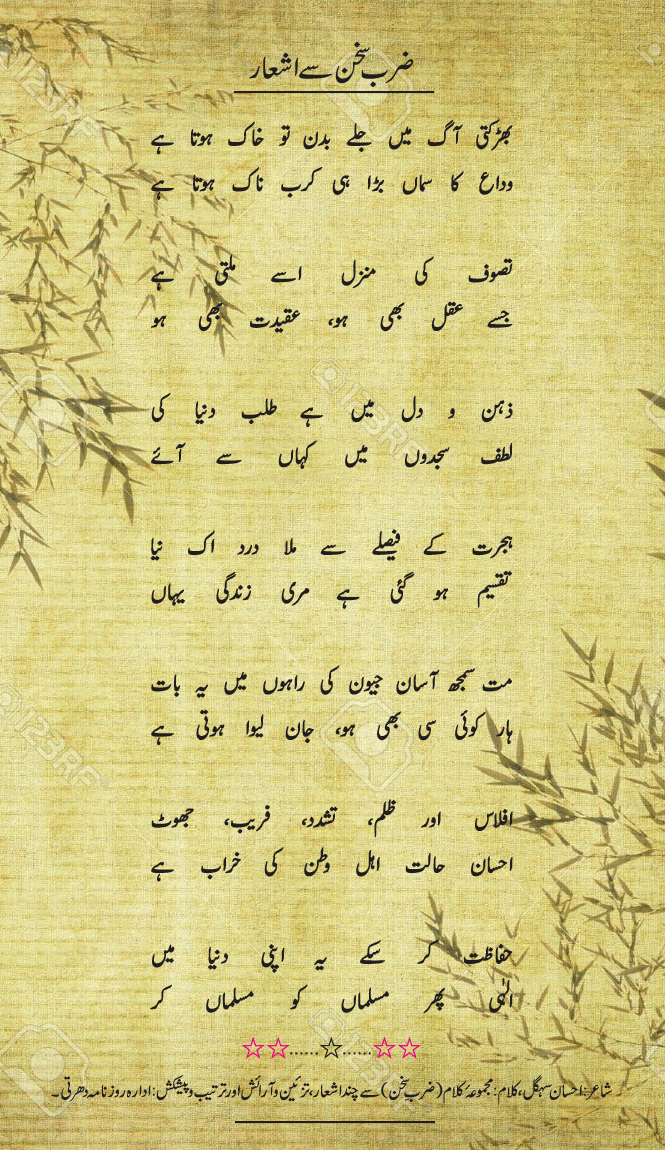 ضربِ سخن سے اشعار
بھڑکتی آگ میں جلے بدن تو خاک ہوتا ہے
وداع کا سماں بڑا ہی کرب ناک ہوتا ہے
تصوف کی منزل اسے ملتی ہے
جسے عقل بھی ہو، عقیدت بھی ہو
ذہن و دل میں ہے طلب دنیا کی
لطف سجدوں میں کہاں سے آئے
ہجرت کے فیصلے سے ملا درد اک نیا
تقسیم ہو گئی ہے مری زندگی یہاں
مت سمجھ آسان جیون کی راہوں میں یہ بات
ہار کوئی سی بھی ہو، جان لیوا ہوتی ہے
افلاس اور ظلم، تشدد، فریب، جھوٹ
احسان حالت اہل وطن کی خراب ہے
حفاظت کر سکے یہ اپنی دنیا میں
الٰہی پھر مسلماں کو مسلماں کر
☆☆......☆......☆☆
شاعر: احسان سہگل، کلام: مجموعۂ کلام (ضربِ سخن) سے چند اشعار، تزئین و آرائش اور ترتیب و پیشکش: ادارہ روزنامہ دھرتی۔
123RF
123RF
123RF